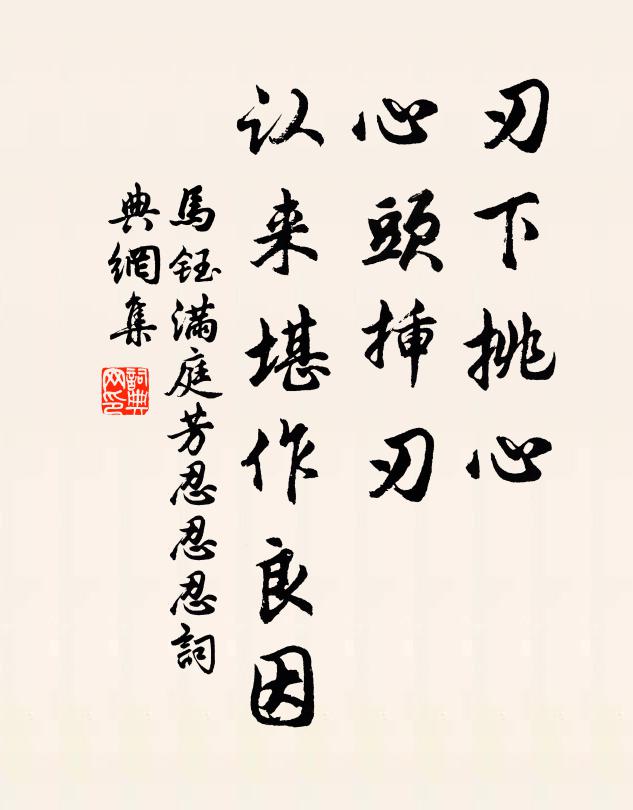 刃下挑心
心頭挿刃
认来堪作良因
馬鈺满庭芳忍忍忍詞
典網集
詞典
网印